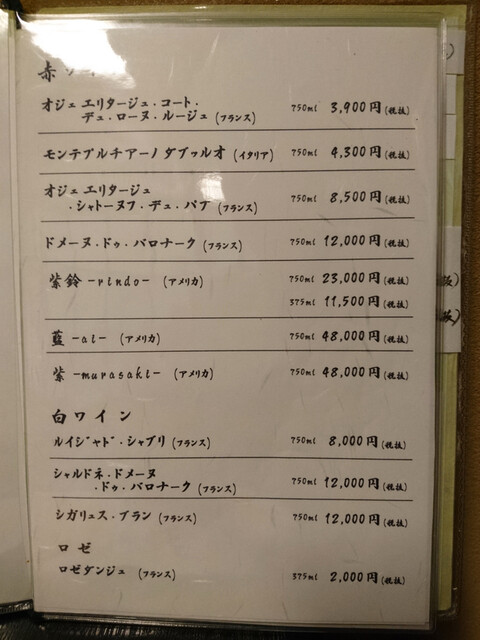 赤ワイン
オジェ エリタージュ・コート・
デュ・ローヌ・ルージュ (フランス) 750ml 3,900円(税抜)
モンテプルチアーノ ダブゥルオ (イタリア) 750ml 4,300円(税抜)
オジェ エリタージュ
・シャトーヌフ・デュ・パプ (フランス) 750ml 8,500円(税抜)
ドメーヌ・ドゥ・バロナーク (フランス) 750ml 12,000円(税抜)
紫鈴 -rindo- (アメリカ) 750ml 23,000円(税抜)
375ml 11,500円(税抜)
藍 -ai- (アメリカ) 750ml 48,000円(税抜)
紫 -murasaki- (アメリカ) 750ml 48,000円(税抜)
白ワイン
ルイジャド・シャブリ (フランス) 750ml 8,000円(税抜)
シャルドネ・ドメーヌ
・ドゥ・バロナーク (フランス) 750ml 12,000円(税抜)
シガリュス・ブラン (フランス) 750ml 12,000円(税抜)
ロゼ
ロゼダンジュ (フランス) 375ml 2,000円(税抜)